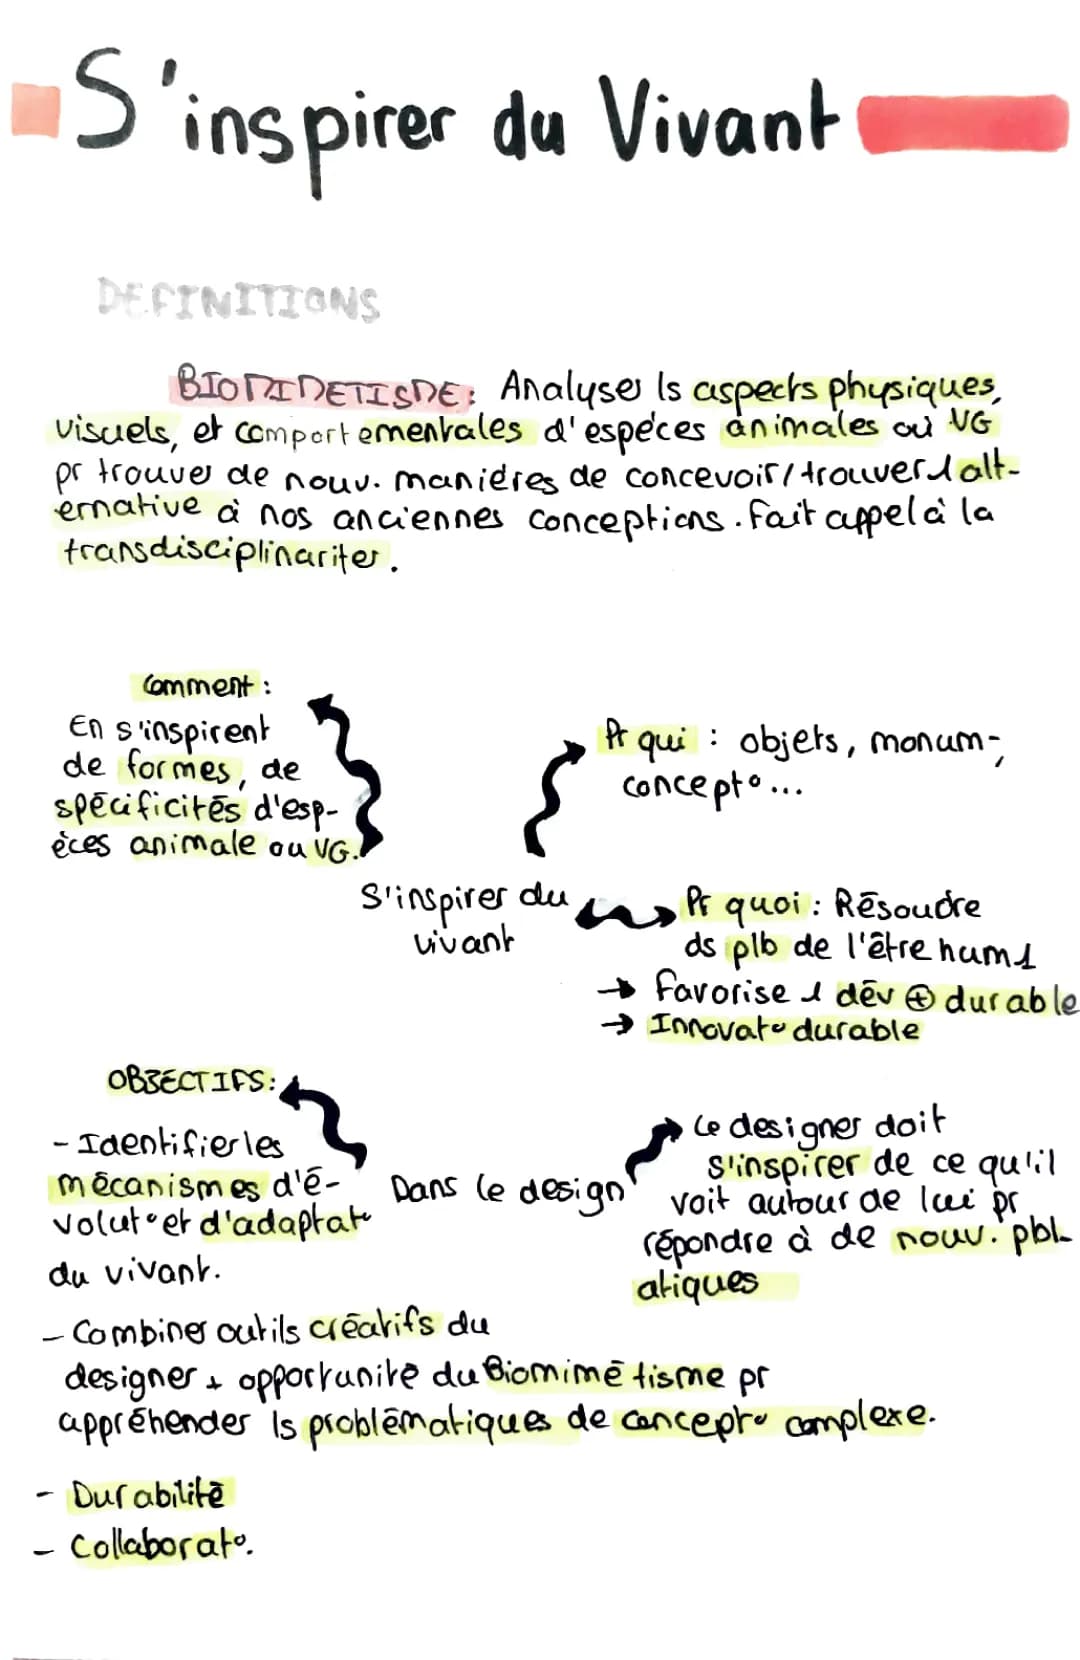 S'inspirer du Vivant
DEFINITIONS
BIOMIMETISME: Analyser ls aspects physiques,
visuels, et comportementales d'espéces animales où VG
pr trouver de nouv. maniéres de concevoir/trouver 1 alt-
ernative à nos anciennes conceptions. Fait appel à la
transdisciplinariter.
Comment :
En s'inspirent
de formes, de
spécificités d'esp-
èces animale ou VG.
Pr qui : objets, monum-,
concept°...
S'inspirer du
vivant
Pr quoi : Résoudre
ds plb de l'être hum1
→ Favorise 1 dév ⊕ durable
→ Innovat° durable
OBJECTIFS:
- Identifier les
mécanismes d'é-
volut° et d'adaptat°
du vivant.
Dans le design
Le designer doit
s'inspirer de ce qu'il
voit autour de lui pr
répondre à de nouv. pbl-
atiques
- Combiner outils créatifs du
designer + opportunité du Biomimétisme pr
appréhender ls problématiques de concept° complexe.
- Durabilité
- Collaborat°.